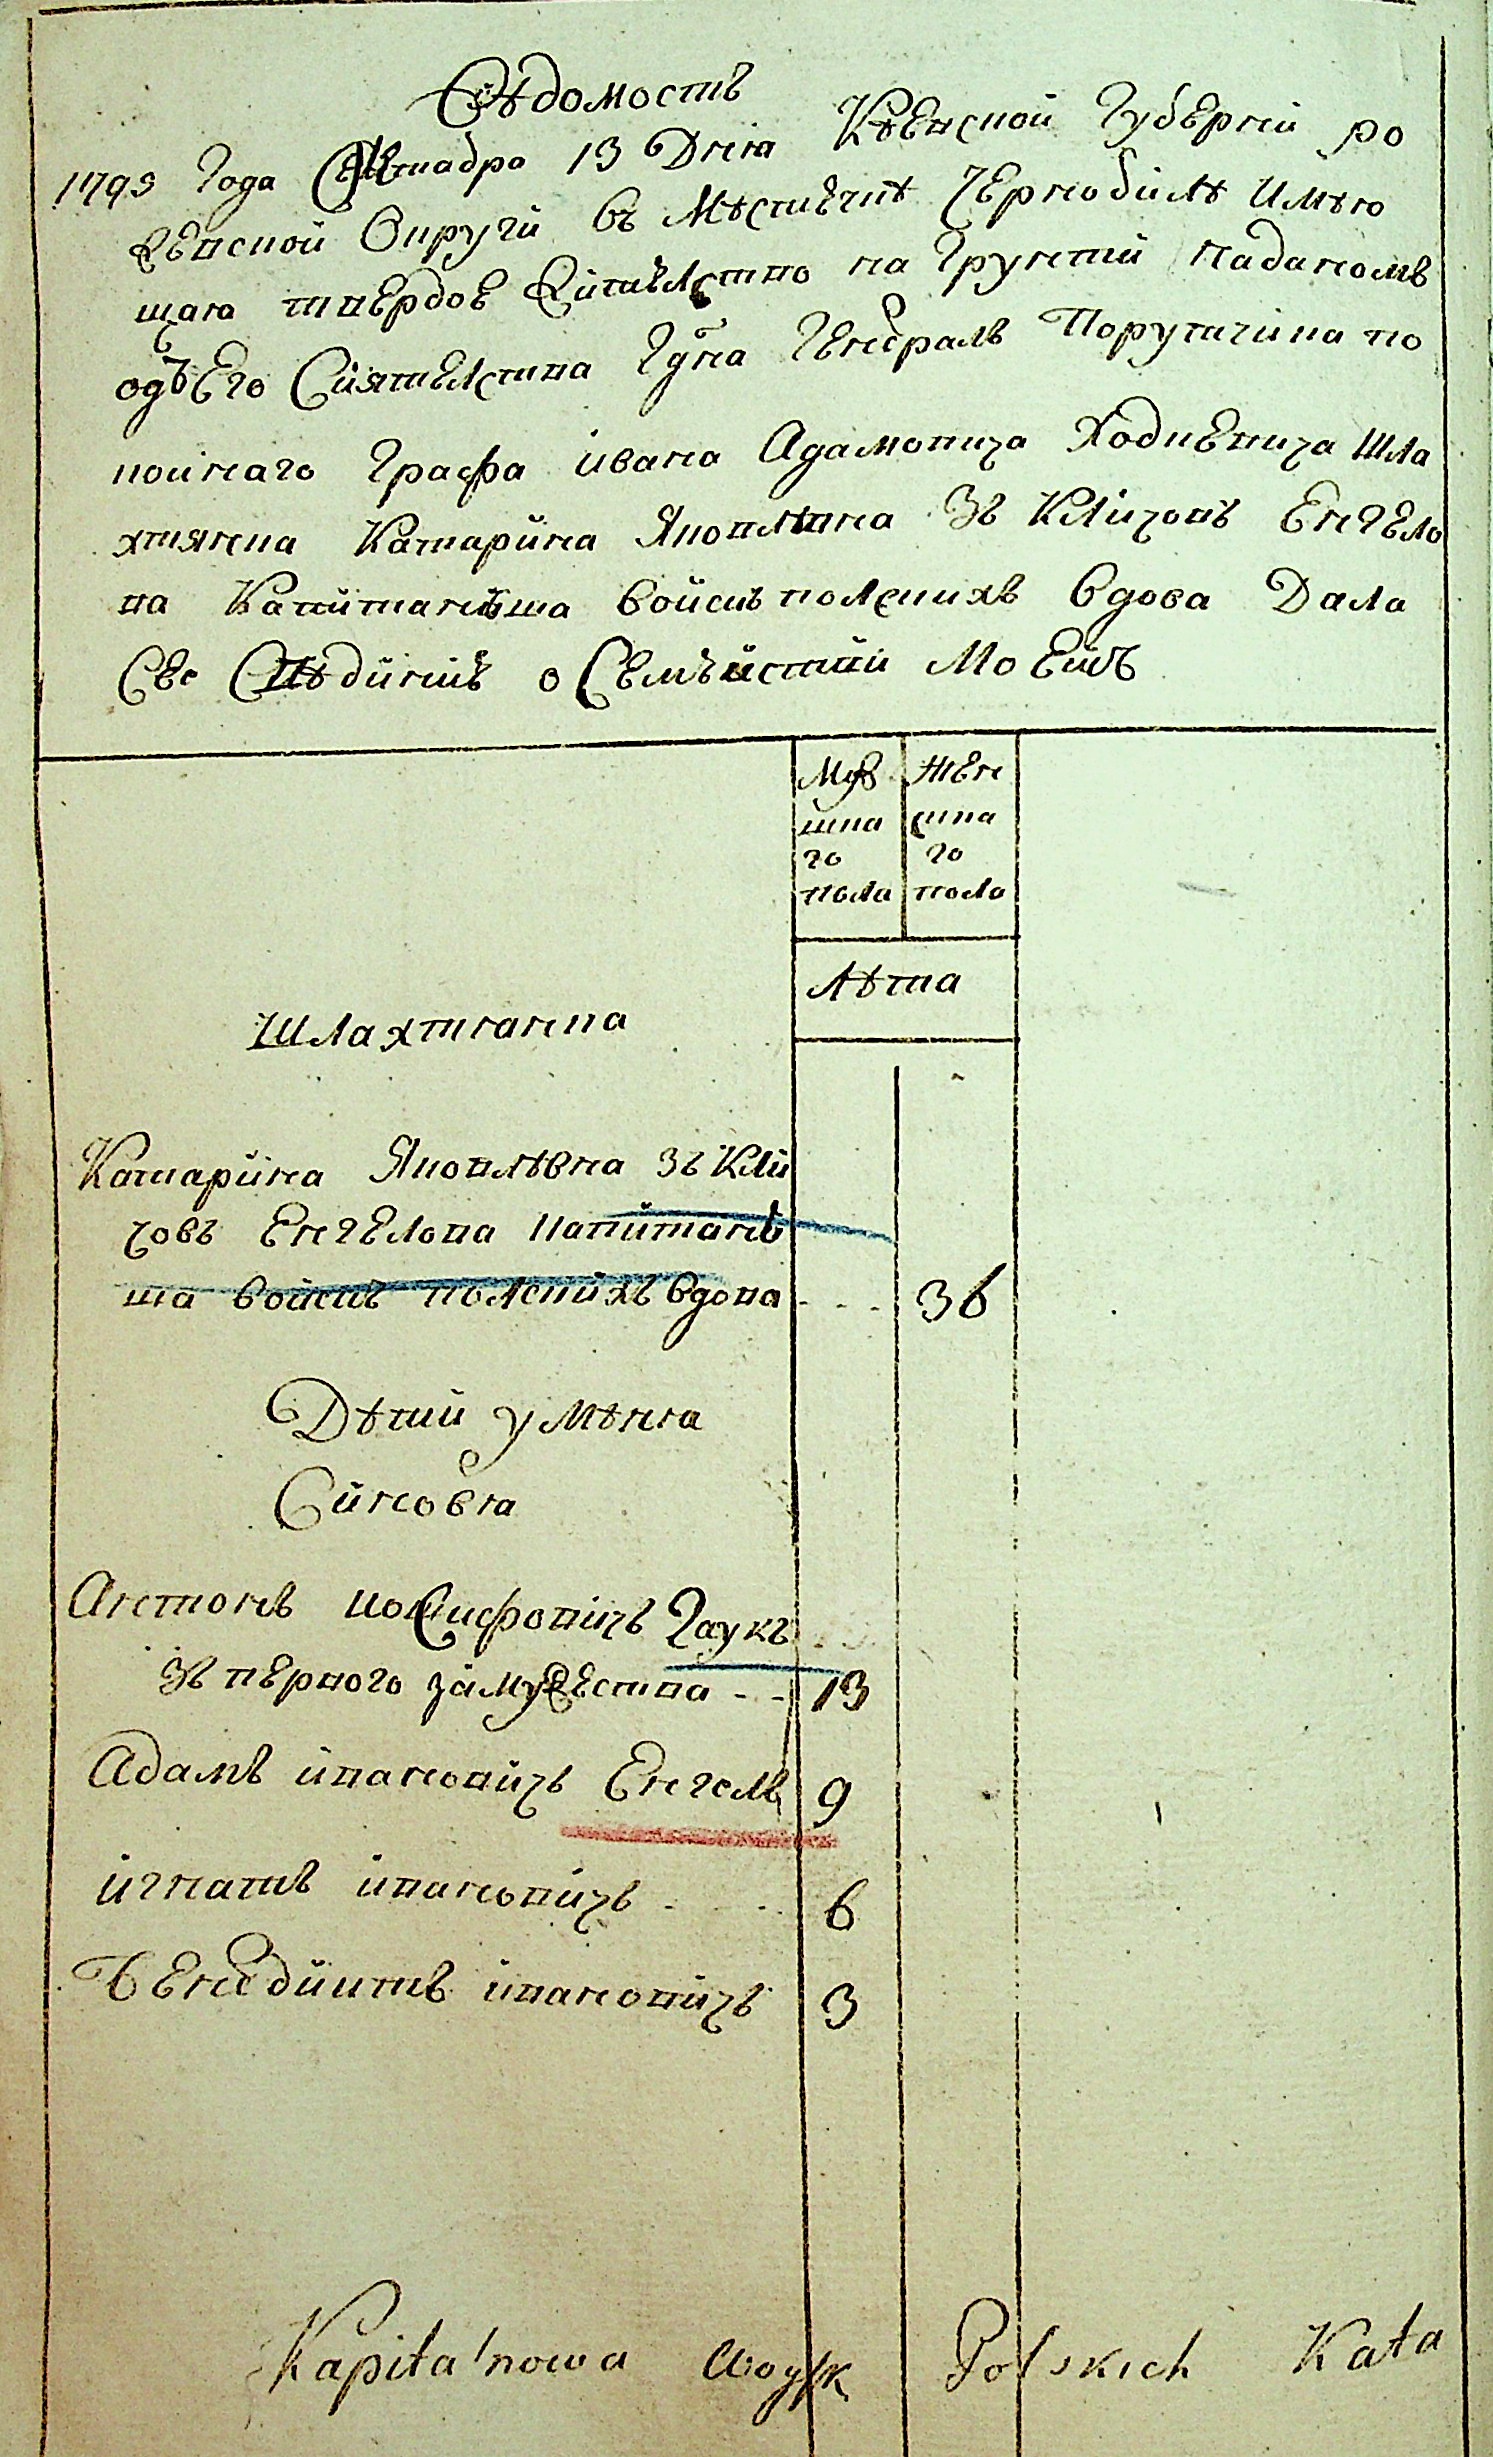 Свѣдомость
1795 Года Октабра 13 Дния Кіевской Губерніи ро
женской Округи въ Мѣстечкѣ Чернобилѣ Имѣю
щая твердое Жительство на Грунтѣ Наданомъ
одъ Его Сиятелства Гдна Генералъ Поручика по
койнаго Графа Ивана Адамовича Ходкевича Шла
хтянка Катарина Яковлѣвна Зъ Кличовъ Енгело
ва Капитанъша Войскъ полскихъ Вдова Дала
Сее Свѣдиниѣ о Семъйстви Моемъ
Муз Жен
шка ска
го го
пола пола
Лѣта
Шлахтянка
Катарина Яковлѣвна Зъ Кли
човъ Енгелова капитанъ
ша войскъ полскихъ вдова - - - 36
Дѣтий у Мѣня
Синовъя
Антонъ иосифовичъ Гаукъ
Зъ первого замужества - - 13
Адамъ ивановичъ Енгель 9
игнатъ ивановичъ - - 6
Бенедиктъ ивановичъ 3
Kapitanowa Woysk Polskich Kata